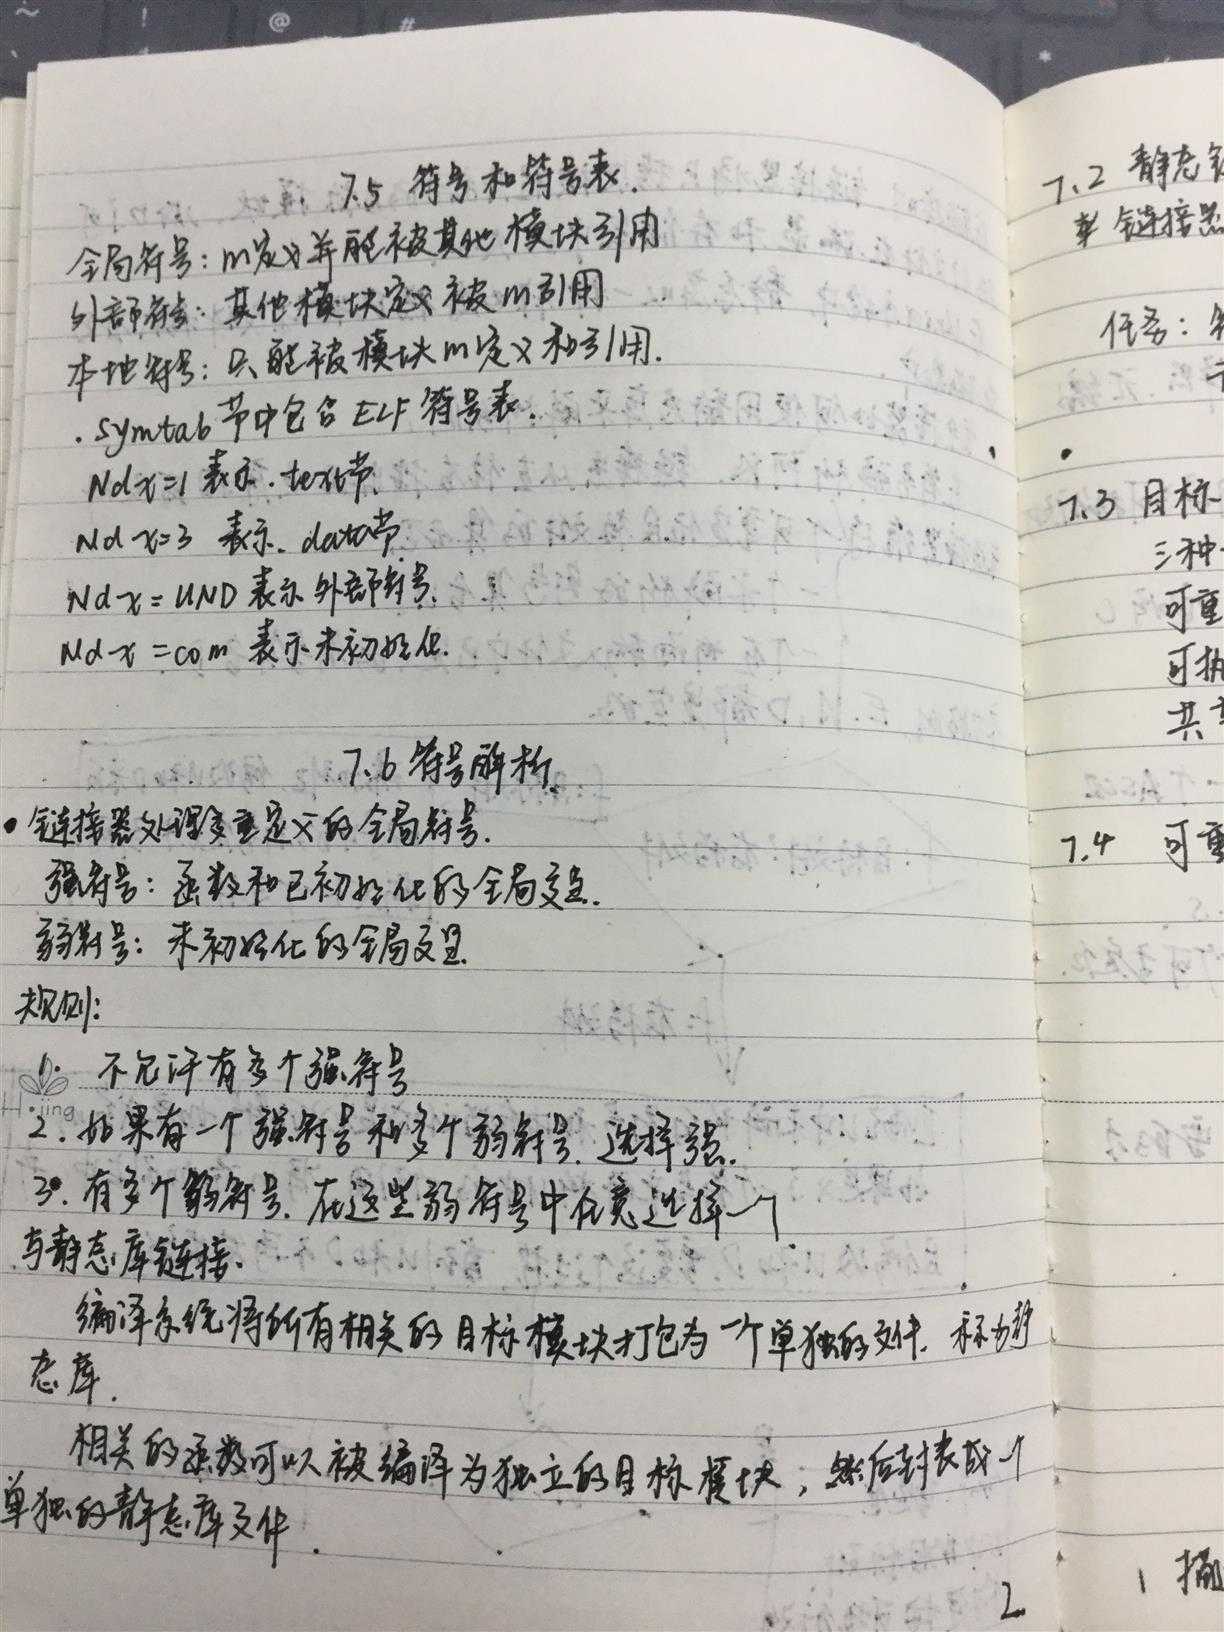 7.5 符号和符号表.
全局符号: m定义并能被其他模块引用
外部符号: 其他模块定义被m引用
本地符号: 只能被模块m定义和引用.
.symtab 节中包含 ELF 符号表.
Ndx=1 表示 .text节.
Ndx=3 表示 .data节
Ndx=UND 表示外部符号.
Ndx=com 表示未初始化.
7.6 符号解析.
• 链接器处理多重定义的全局符号.
强符号: 函数和已初始化的全局变量.
弱符号: 未初始化的全局变量
规则:
1. 不允许有多个强符号
H·jing
2. 如果有一个强符号和多个弱符号. 选择强.
3. 有多个弱符号. 在这些弱符号中任意选择一个.
与静态库链接.
编译系统将所有相关的目标模块打包为一个单独的文件. 称为静
态库.
相关的函数可以被编译为独立的目标模块, 然后封装成一个
单独的静态库文件.
2
7.2 静态
链接器
任务:
7.3 目标
三种
可重
可执
共
7.4 可重
1